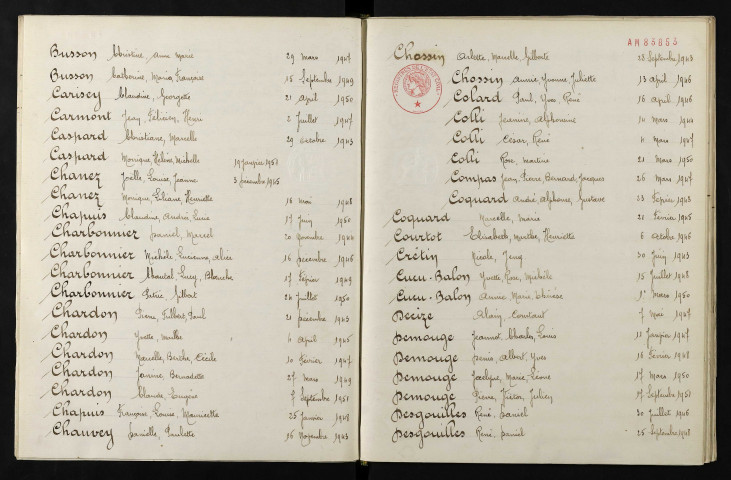 Busson Christine, Anne Marie 29 mars 1947
Busson Catherine, Maria, Françoise 15 Septembre 1949
Carisey Claudine, Georgette 21 April 1950
Carmont Jean, Félicien, Henri 2 Juillet 1947
Caspard Christiane, Marcelle 29 octobre 1943
Caspard Monique, Hélène, Michelle 19 Janvier 1951
Chanez Joëlle, Louise, Jeanne 3 décembre 1945
Chanez Monique, Liliane, Henriette 16 mai 1948
Chapuis Claudine, Andrée, Lucie 17 Juin 1950
Charbonnier Daniel, Marcel 20 novembre 1944
Charbonnier Michèle, Lucienne, Alice 16 décembre 1946
Charbonnier Chantal, Lucy, Blanche 17 Février 1949
Charbonnier Patrice, Gilbert 24 Juillet 1950
Chardon Pierre, Fulbert, Paul 21 décembre 1943
Chardon Yvette, 4 April 1945
Chardon Marcelle, Berthe, Cécile 10 Février 1947
Chardon Janine, Bernadette 27 mars 1949
Chardon Claude, Eugène 9 Septembre 1951
Chapuis Françoise, Louise, Mauricette 25 Janvier 1948
Chauvey Danielle, Paulette 16 Novembre 1943
AM 83853
Chossin Arlette, Marcelle, Gilberte 28 Septembre 1943
Chossin Annie, Yvonne, Juliette 13 April 1946
Colard Paul, Yves, René 16 April 1946
Colli Jeanine, Alphonsine 14 mars 1944
Colli César, René 11 mars 1947
Colli Rose, Martine 21 mars 1950
Compas Jean, Pierre, Bernard, Jacques 26 mars 1947
Coquard André, Alphonse, Gustave 23 Février 1943
Coquard Marcelle, Marie 21 Février 1945
Courtot Elisabeth, Marthe, Henriette 6 octobre 1946
Crétin Nicole, Jeny 30 Juin 1943
Cucu-Balon Yvette, Rose, Michèle 15 Juillet 1948
Cucu-Balon Annie, Marie, Thérèse 1er mars 1950
Decize Alain, Constant 7 mai 1947
Demouge Jeannot, Charles, Louis 11 Janvier 1947
Demouge Denis, Albert, Yves 18 Février 1948
Demouge Jocelyne, Marie-Léone 17 mars 1950
Demouge Pierre, Victor, Julien 17 Septembre 1951
Desgouilles René, Daniel 30 Juillet 1946
Desgouilles René, Daniel 25 Septembre 1948